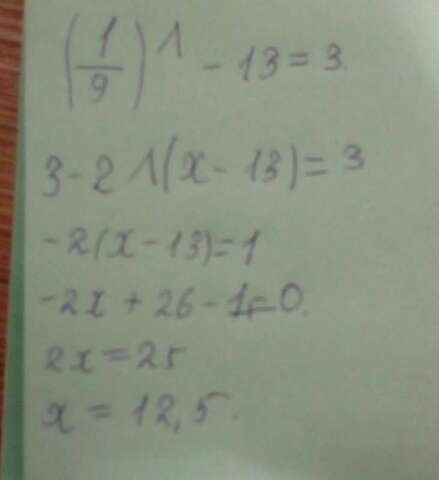 (1/9)^ - 13 = 3.
3 - 2 ^(x - 13) = 3
-2(x - 13) = 1
-2x + 26 - 1 = 0.
2x = 25
x = 12,5.